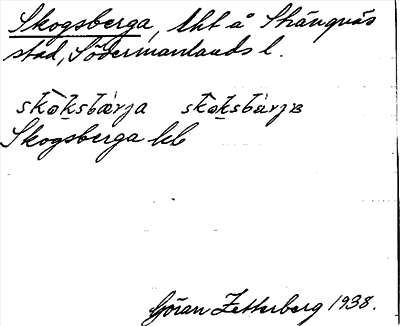 Skogsberga, lht å Strängnäs
stad, Södermanlands l.
skòksbærja skòksbærjɐ
Skogsberga kb
Göran Zetterberg 1938.